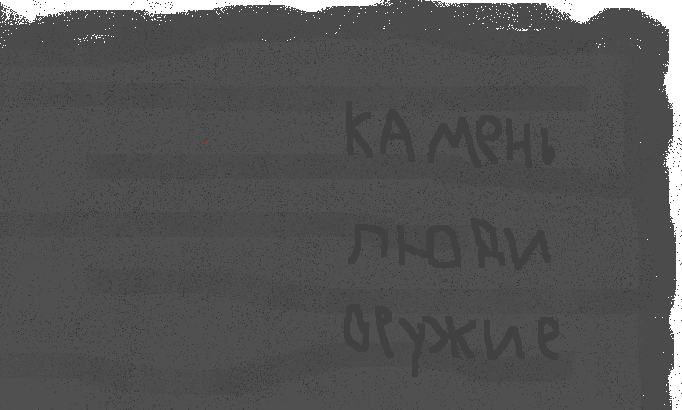 камень
люди
оружие